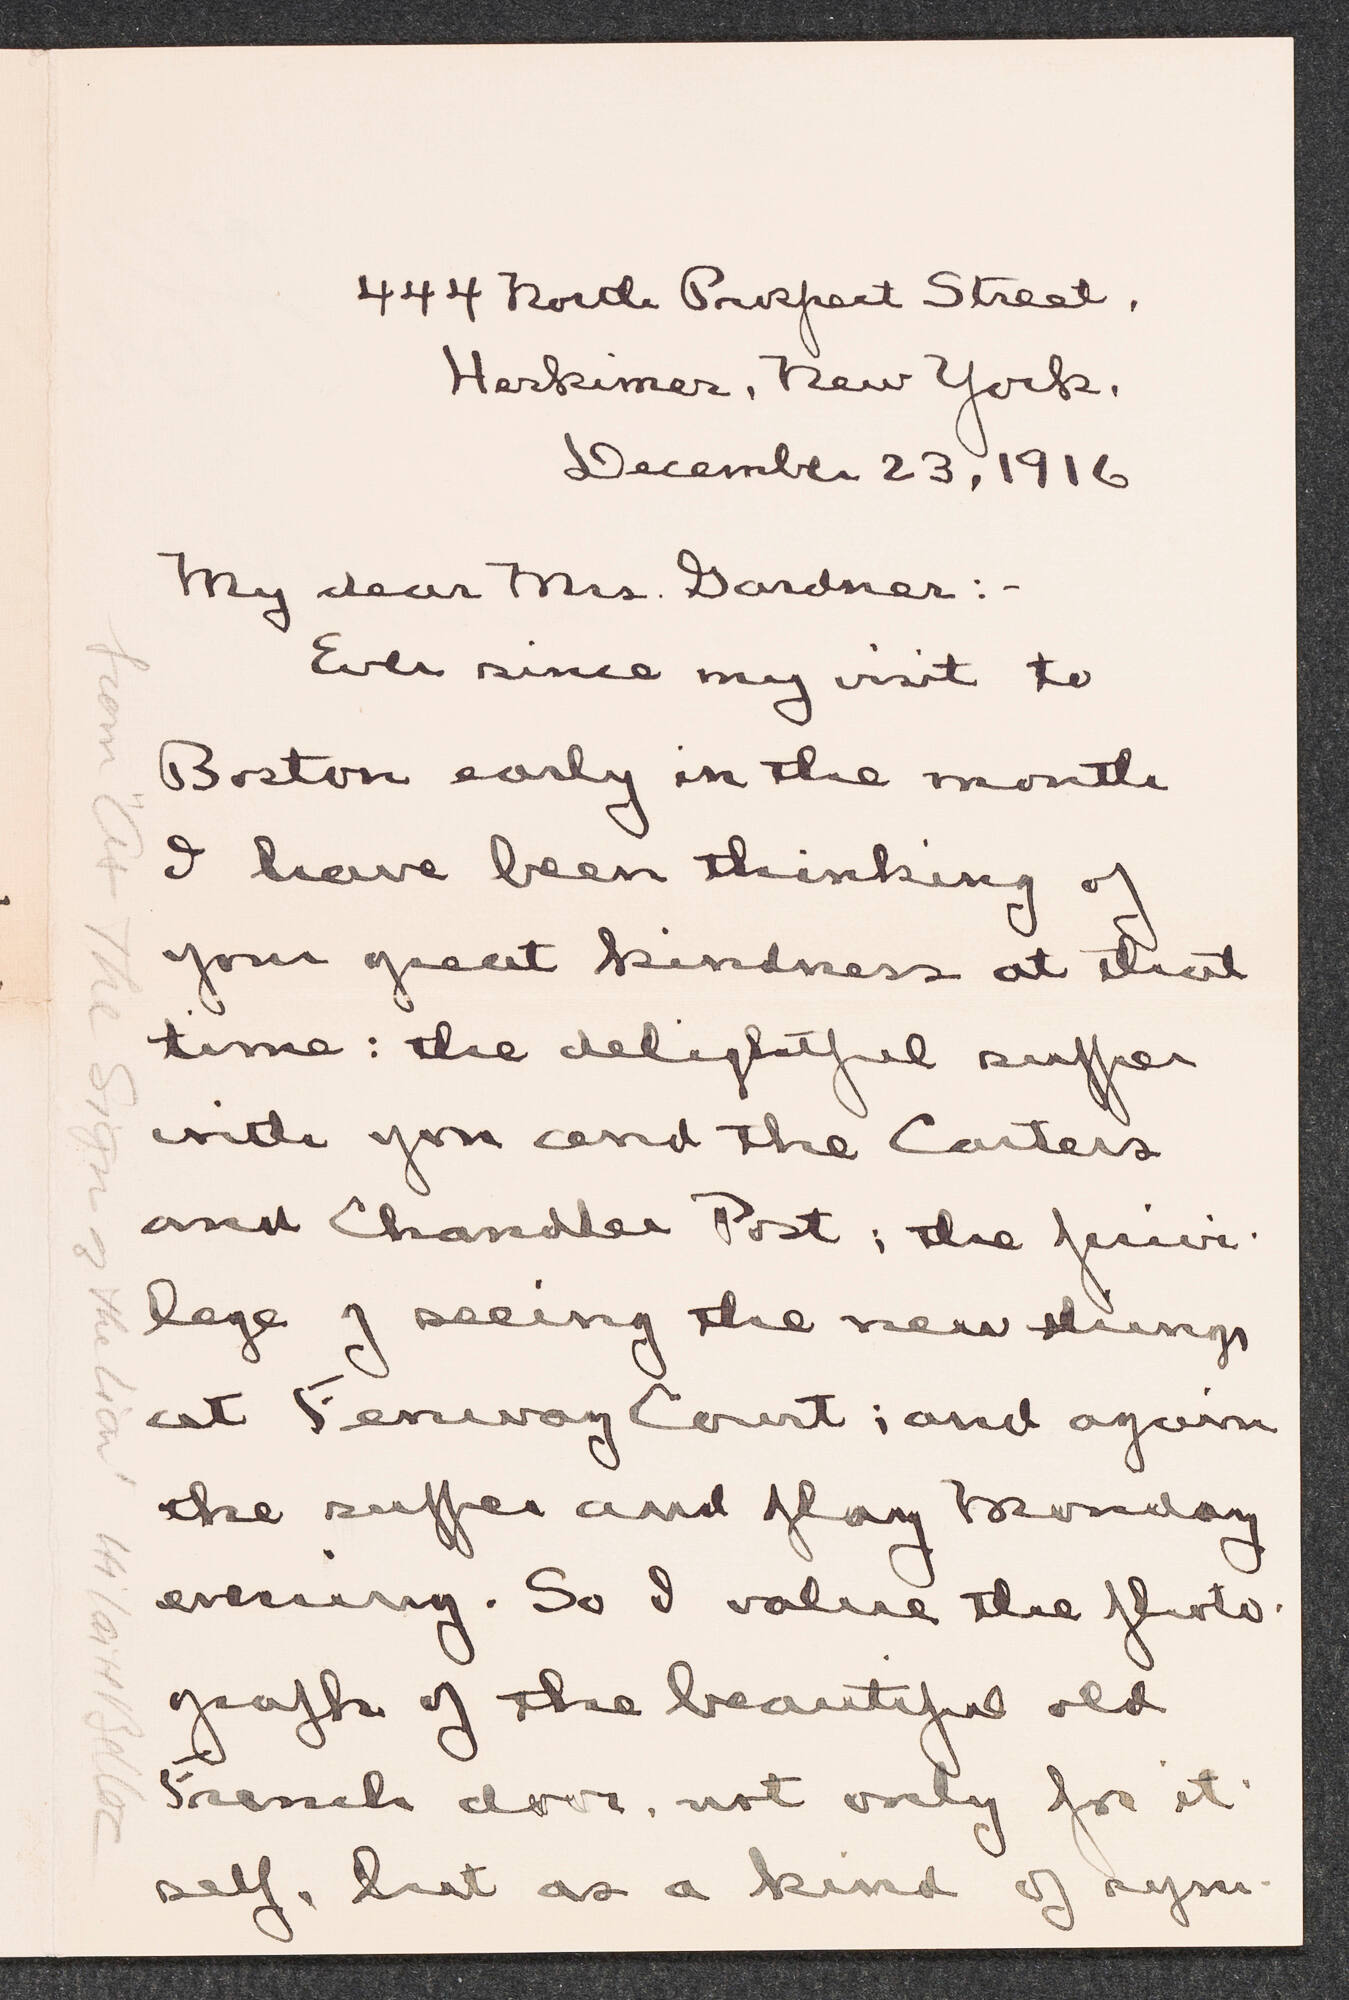 444 North Prospect Street,
Herkimer, New York,
December 23, 1916
My dear Mrs. Gardner:-
Ever since my visit to
Boston early in the month
I have been thinking of
your great kindness at that
time: the delightful supper
with you and the Carters
and Chandler Post; the privi-
lege of seeing the new things
at Fenway Court; and again
the supper and play Monday
evening. So I value the photo-
graph of the beautiful old
French door, not only for it-
self, but as a kind of sym-
from "At The Sign of the Lion" Hilaire Belloc